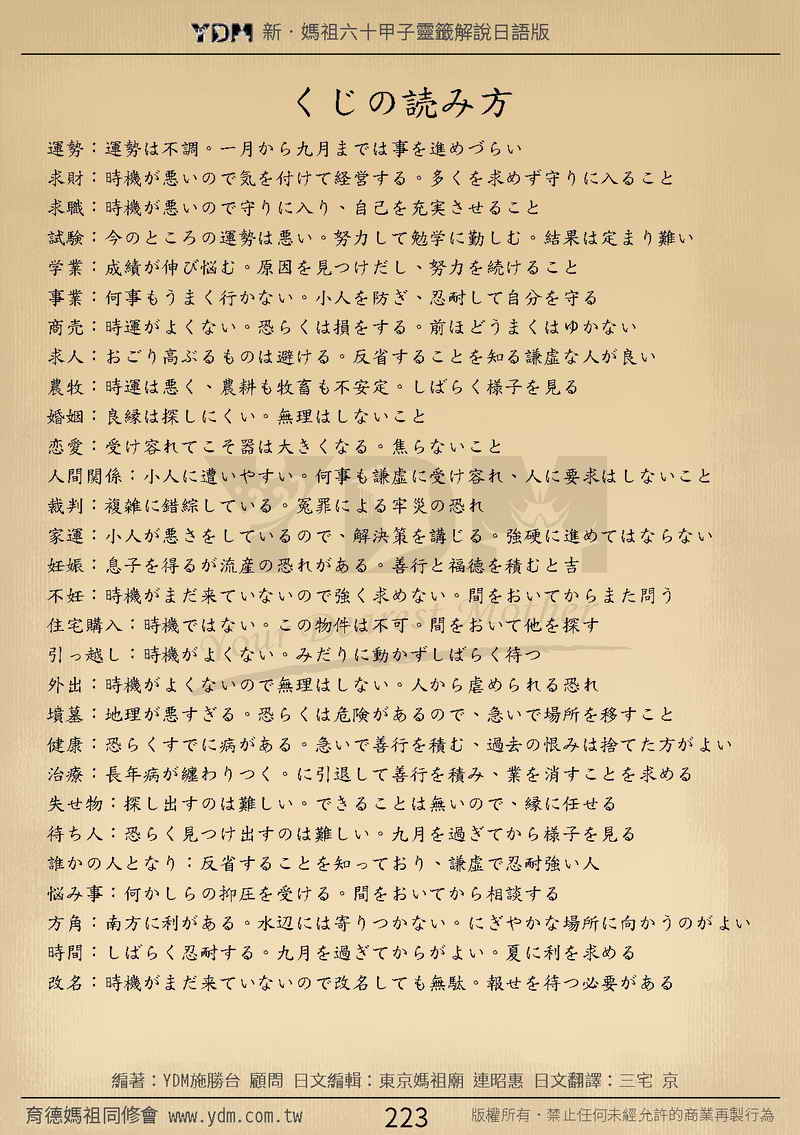 YDM 新・媽祖六十甲子靈籤解說日語版
くじの読み方
運勢：運勢は不調。一月から九月までは事を進めづらい
求財：時機が悪いので気を付けて経営する。多くを求めず守りに入ること
求職：時機が悪いので守りに入り、自己を充実させること
試験：今のところの運勢は悪い。努力して勉学に勤しむ。結果は定まり難い
学業：成績が伸び悩む。原因を見つけだし、努力を続けること
事業：何事もうまく行かない。小人を防ぎ、忍耐して自分を守る
商売：時運がよくない。恐らくは損をする。前ほどうまくはゆかない
求人：おごり高ぶるものは避ける。反省することを知る謙虚な人が良い
農牧：時運は悪く、農耕も牧畜も不安定。しばらく様子を見る
婚姻：良縁は探しにくい。無理はしないこと
恋愛：受け容れてこそ器は大きくなる。焦らないこと
人間関係：小人に遭いやすい。何事も謙虚に受け容れ、人に要求はしないこと
裁判：複雑に錯綜している。冤罪による牢災の恐れ
家運：小人が悪さをしているので、解決策を講じる。強硬に進めてはならない
妊娠：息子を得るが流産の恐れがある。善行と福徳を積むと吉
不妊：時機がまだ来ていないので強く求めない。間をおいてからまた問う
住宅購入：時機ではない。この物件は不可。間をおいて他を探す
引っ越し：時機がよくない。みだりに動かずしばらく待つ
外出：時機がよくないので無理はしない。人から虐められる恐れ
墳墓：地理が悪すぎる。恐らくは危険があるので、急いで場所を移すこと
健康：恐らくすでに病がある。急いで善行を積む、過去の恨みは捨てた方がよい
治療：長年病が纏わりつく。に引退して善行を積み、業を消すことを求める
失せ物：探し出すのは難しい。できることは無いので、縁に任せる
待ち人：恐らく見つけ出すのは難しい。九月を過ぎてから様子を見る
誰かの人となり：反省することを知っており、謙虚で忍耐強い人
悩み事：何かしらの抑圧を受ける。間をおいてから相談する
方角：南方に利がある。水辺には寄りつかない。にぎやかな場所に向かうのがよい
時間：しばらく忍耐する。九月を過ぎてからがよい。夏に利を求める
改名：時機がまだ来ていないので改名しても無駄。報せを待つ必要がある
YDM
Your Dearest Mother
編著：YDM施勝台 顧問 日文編輯：東京媽祖廟 連昭惠 日文翻譯：三宅 京
育德媽祖同修會 www.ydm.com.tw 223 版權所有・禁止任何未經允許的商業再製行為